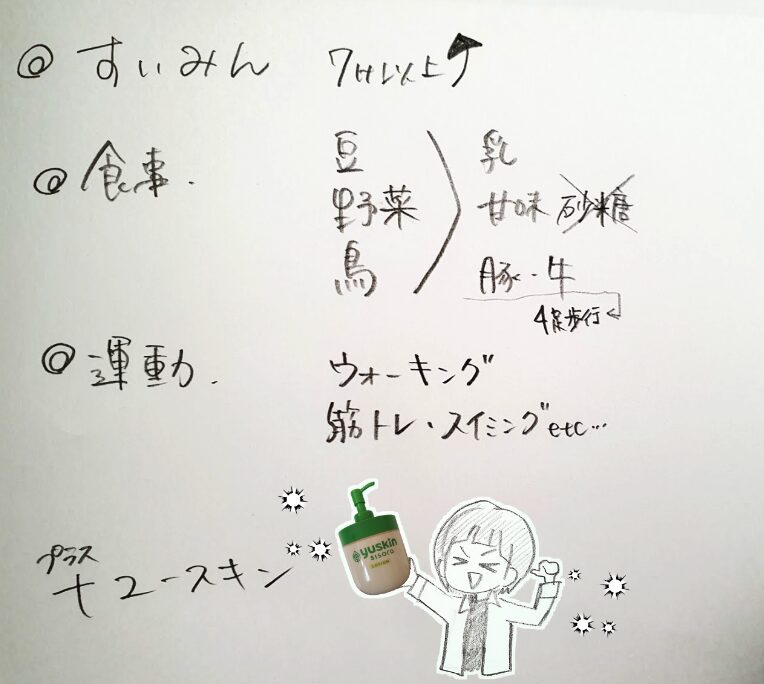 ◎ すいみん 7H以上↑
◎ 食事. 豆 > 乳
野菜 甘味 砂糖
鳥 豚・牛
4足歩行
◎ 運動. ウォーキング
筋トレ・スイミングetc…
プラス
+ユースキン
yuskin
sisora
LOTION